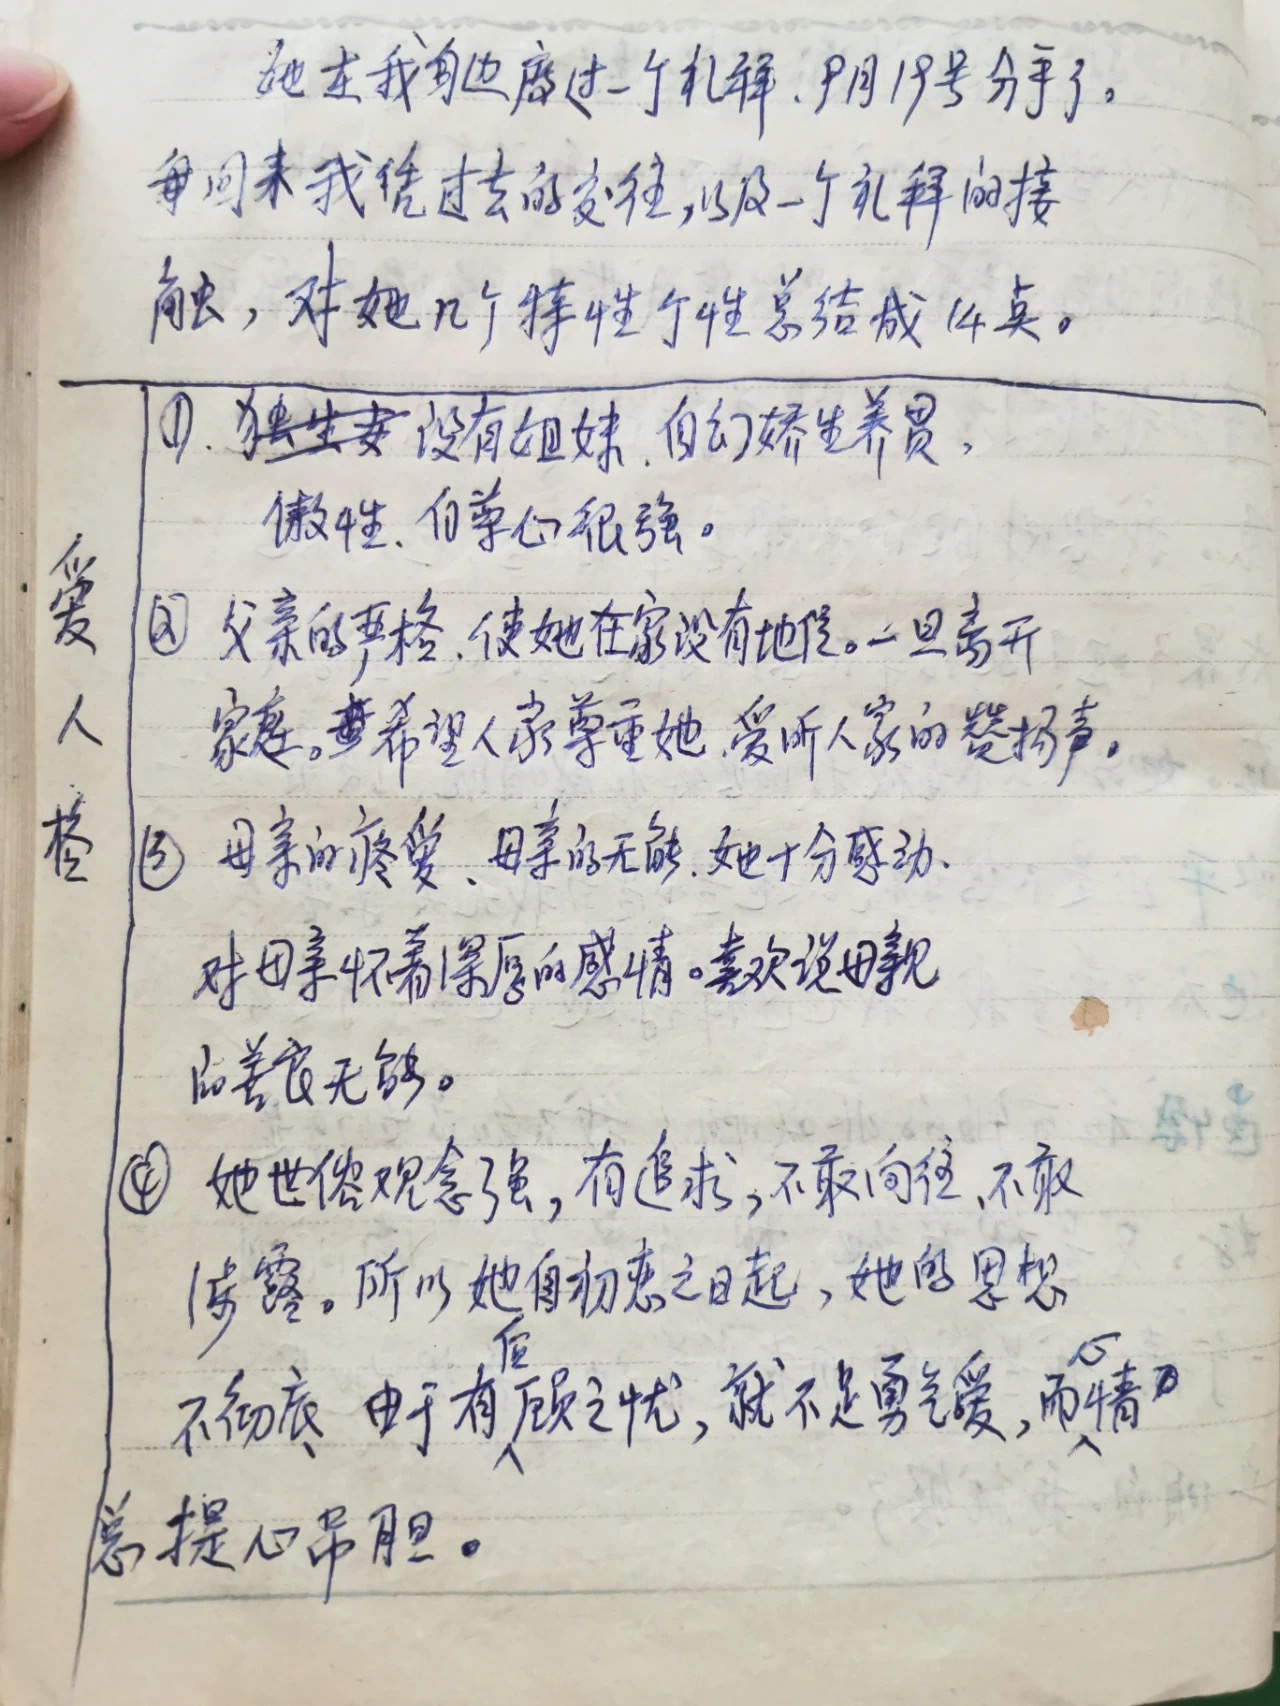 她在我身边度过一个礼拜、9月19号分手了。
每回来我凭过去的交往,以及一个礼拜的接
触,对她几个特性个性总结成14点。
①.独生女 没有姐妹、自幻娇生养贯,
傲性、自尊心很强。
② 父亲的严格、使她在家没有地位。一旦离开
家庭。希望人家尊重她、爱听人家的赞扬声。
③ 母亲的疼爱、母亲的无能、她十分感动、
对母亲怀着深厚的感情。喜欢说母親
的善良无能。
④ 她世俗观念强,有追求,不敢向往、不敢
流露。所以她自初恋之日起,她的思想
不彻底、由于有后顾之忧,就不足勇气爱,而心情
总提心吊胆。
爱人格